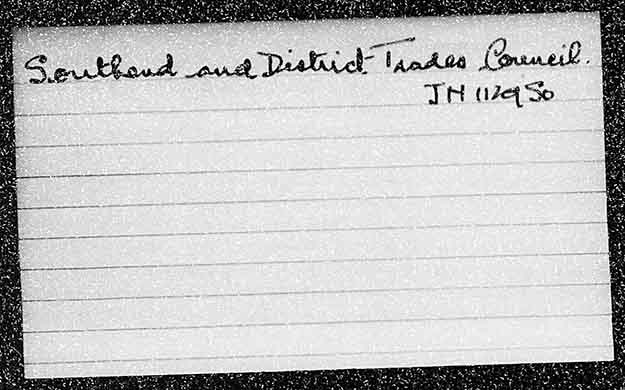 Southend and District Trades Council.
JN 1129 So